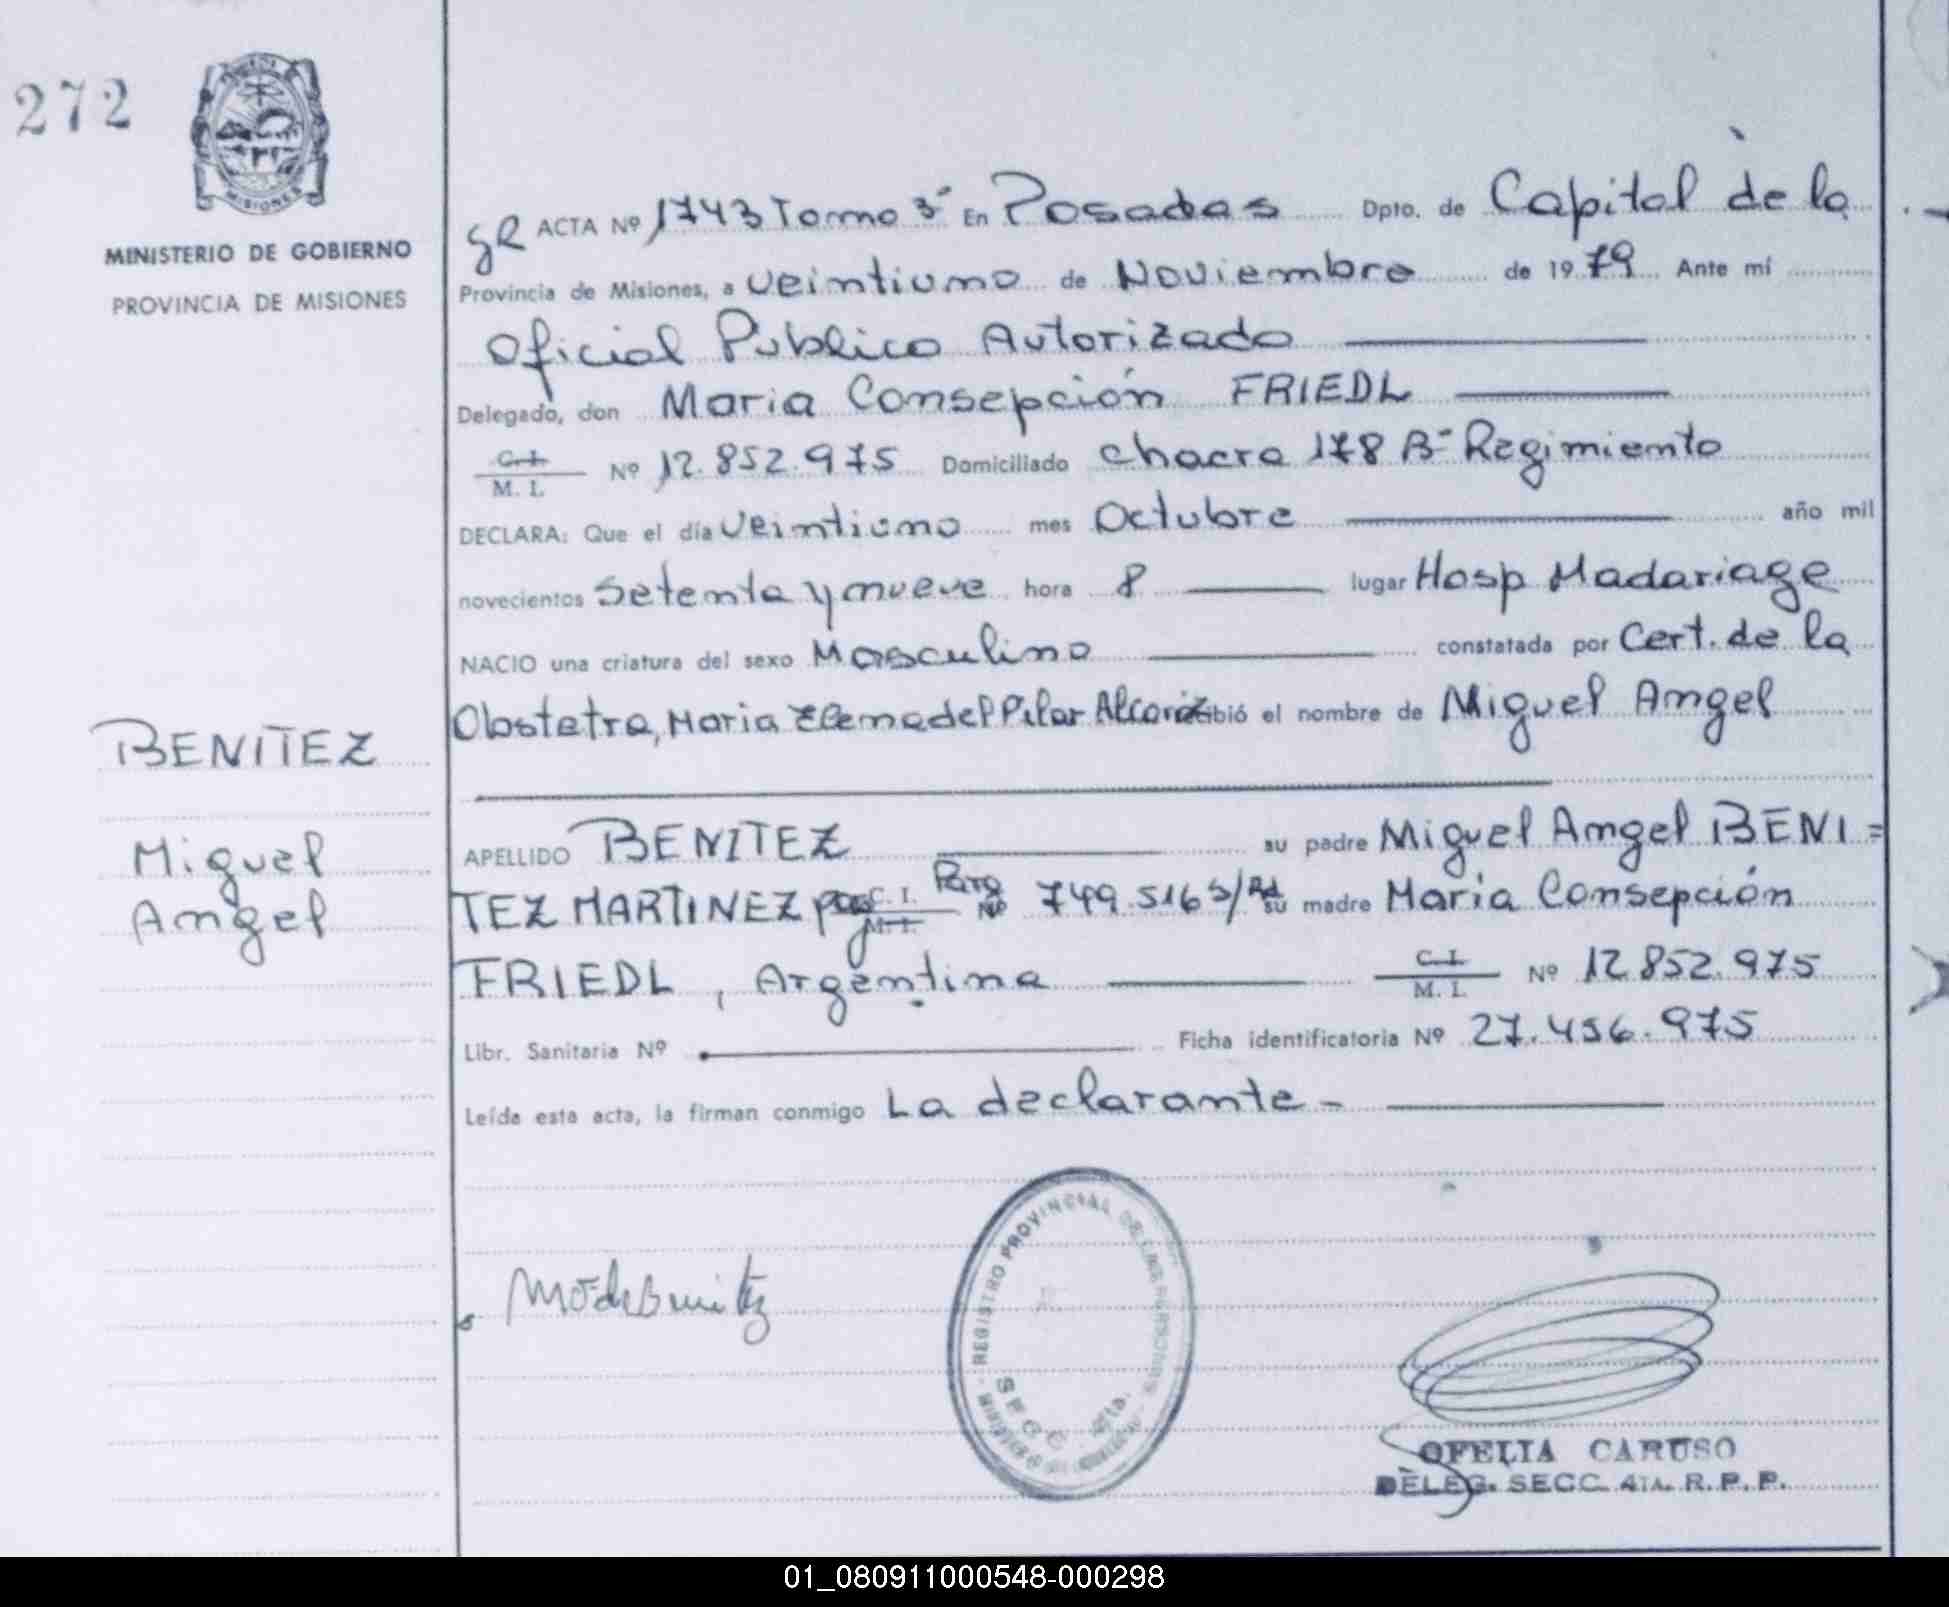 272
MINISTERIO DE GOBIERNO
PROVINCIA DE MISIONES
BENITEZ
Miguel
Angel
gR ACTA Nº 1743 Tomo 3º En Posadas Dpto. de Capital de la
Provincia de Misiones, a veintiuno de Noviembre de 1979 Ante mí
Oficial Publico Autorizado
Delegado, don Maria Consepción FRIEDL
C.I. M. I. Nº 12.852.975 Domiciliado chacra 178 Bº Regimiento
DECLARA: Que el día veintiuno mes Octubre año mil
novecientos setenta y nueve hora 8 lugar Hosp Madariaga
NACIO una criatura del sexo Masculino constatada por Cert. de la
Obstetra, Maria Elena del Pilar Alcaraz recibió el nombre de Miguel Angel
APELLIDO BENITEZ su padre Miguel Angel BENI=
TEZ MARTINEZ C. I. M. I. Nº 749.516 S/Rd su madre Maria Consepción
FRIEDL, Argentina C.I. M. I. Nº 12.852.975
Libr. Sanitaria Nº Ficha identificatoria Nº 27.456.975
Leída esta acta, la firman conmigo La declarante -
REGISTRO PROVINCIAL DE LAS PERSONAS
SECC. 4ta.
OFELIA CARUSO
DELEG. SECC. 4TA. R. P. P.
01_080911000548-000298